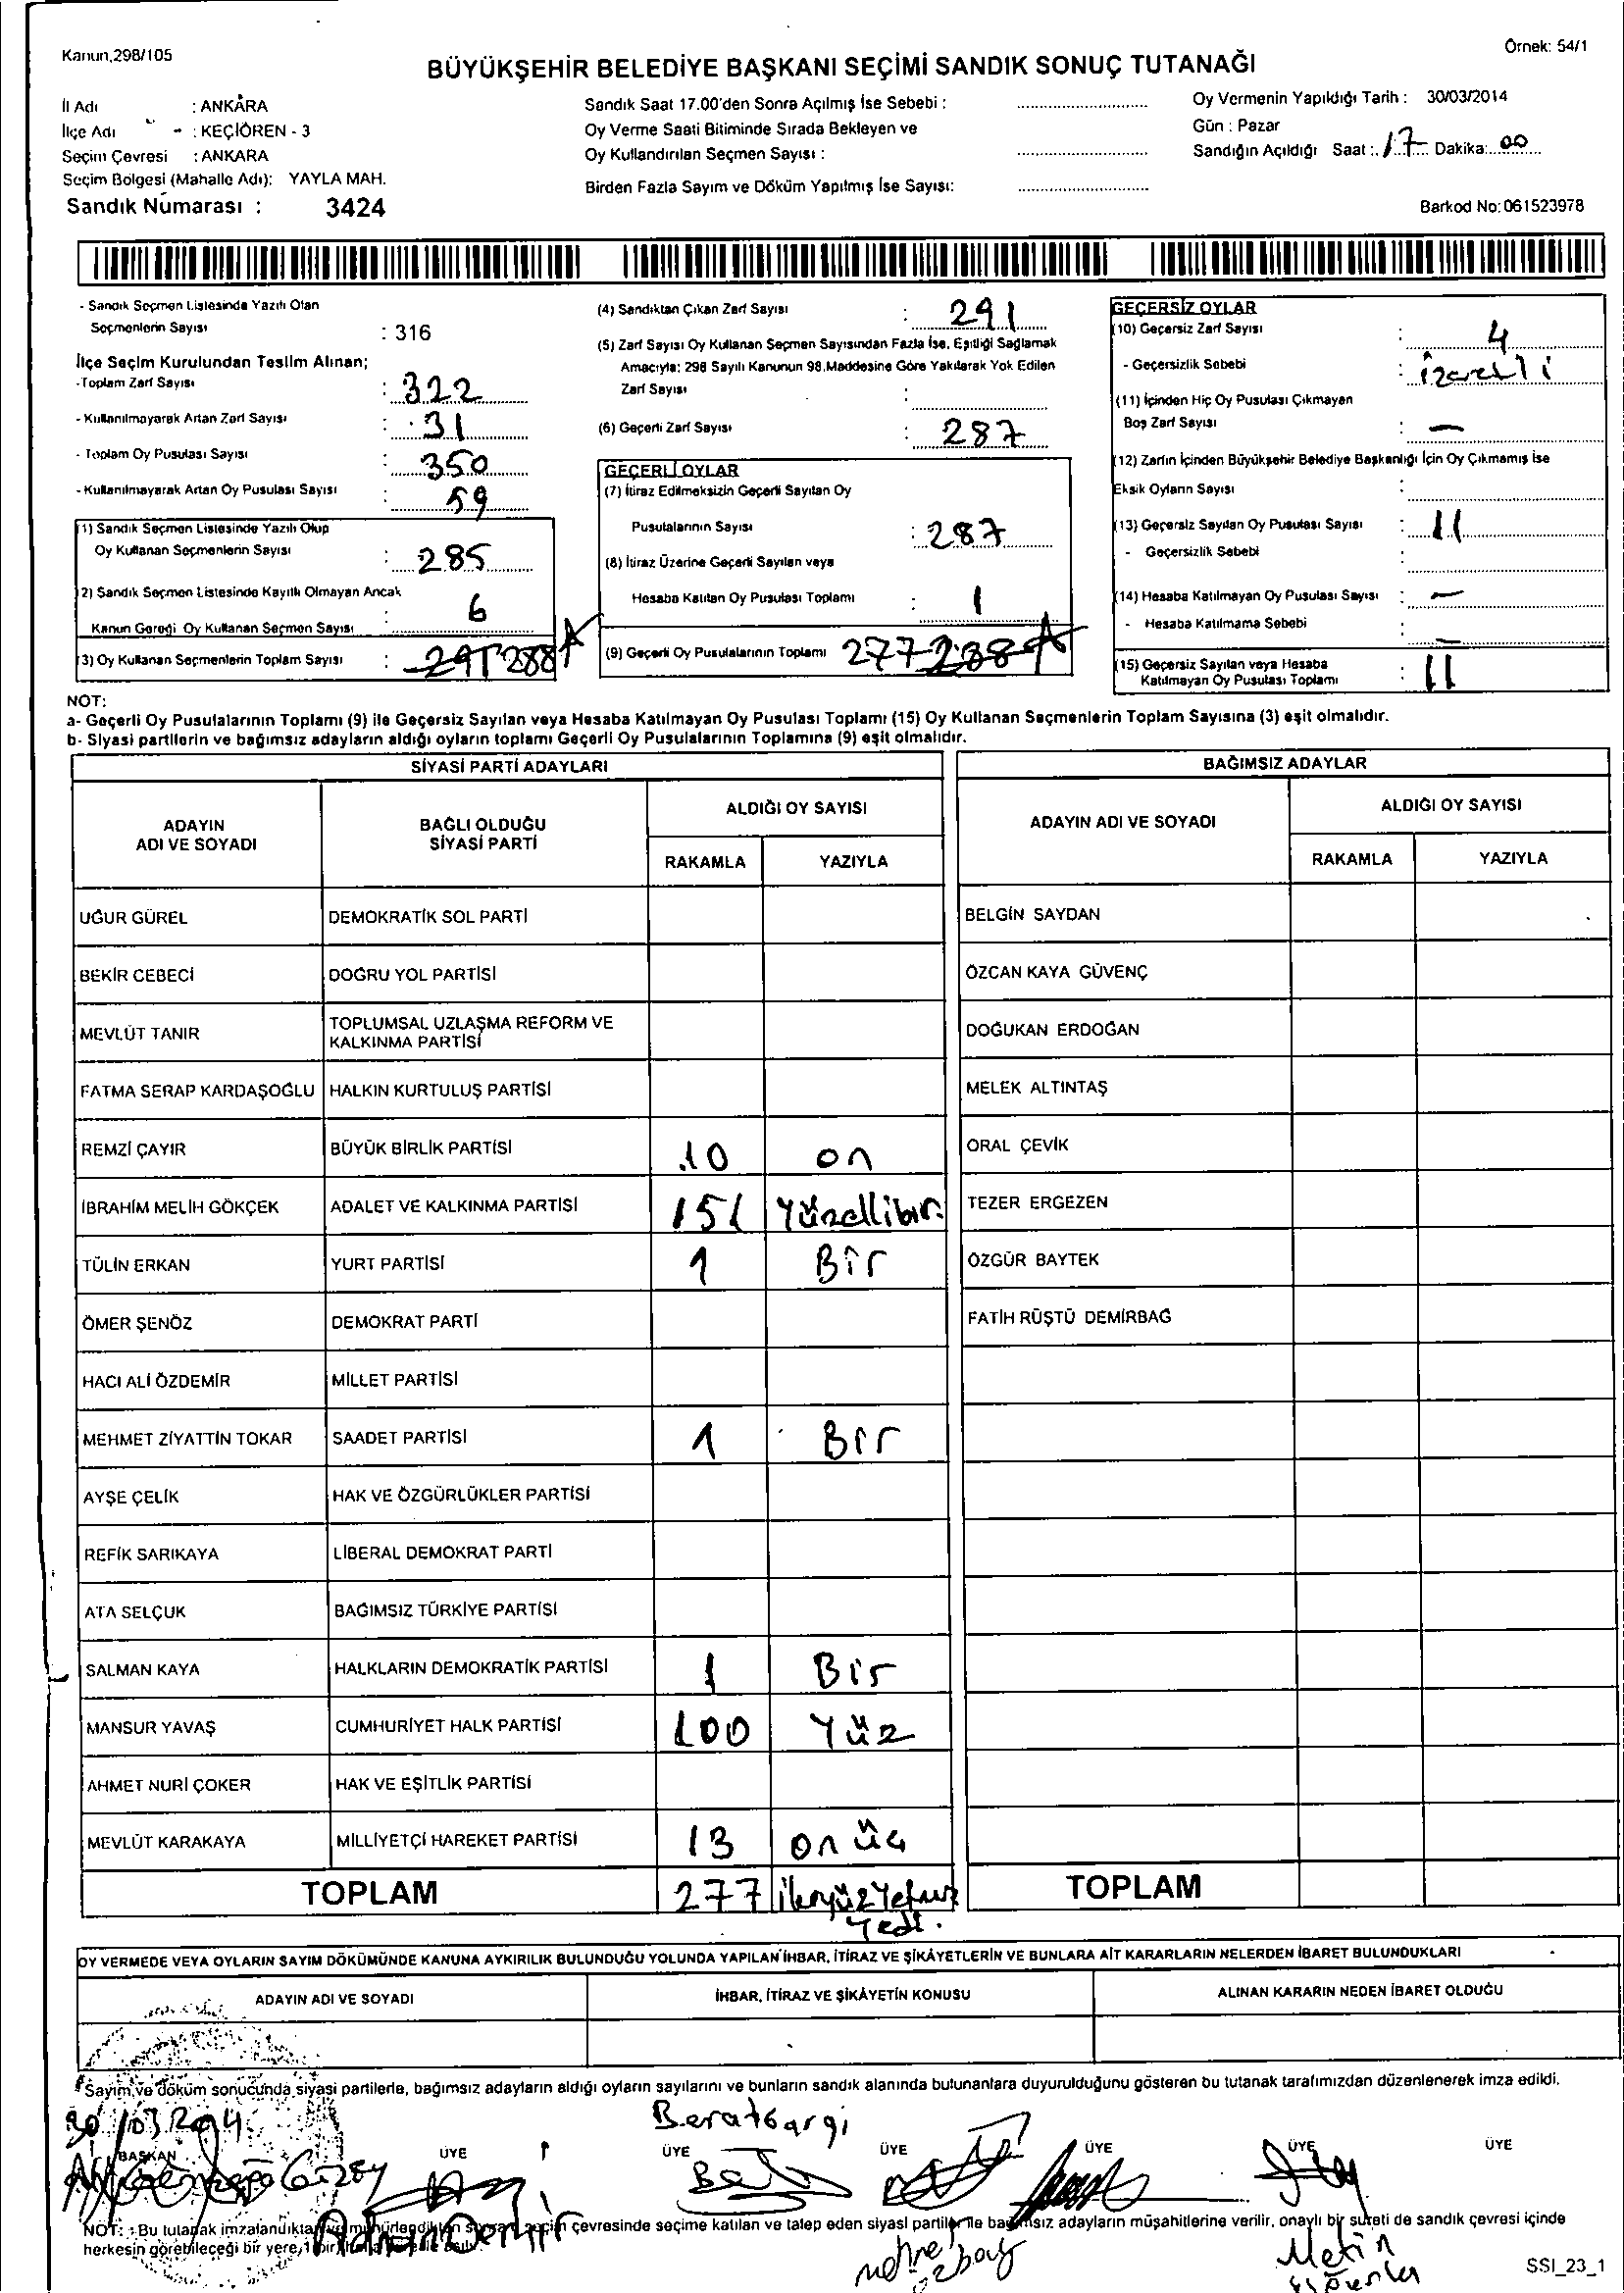 Kanun,298/105
Örnek: 54/1
BÜYÜKŞEHİR BELEDİYE BAŞKANI SEÇİMİ SANDIK SONUÇ TUTANAĞI
İl Adı : ANKARA
İlçe Adı : KEÇİÖREN - 3
Seçim Çevresi : ANKARA
Seçim Bölgesi (Mahalle Adı): YAYLA MAH.
Sandık Numarası : 3424
Sandık Saat 17.00'den Sonra Açılmış İse Sebebi :
Oy Verme Saati Bitiminde Sırada Bekleyen ve
Oy Kullandırılan Seçmen Sayısı :
Birden Fazla Sayım ve Döküm Yapılmış İse Sayısı:
Oy Vermenin Yapıldığı Tarih : 30/03/2014
Gün : Pazar
Sandığın Açıldığı Saat : 17 Dakika: 00
Barkod No: 061523978
- Sandık Seçmen Listesinde Yazılı Olan
Seçmenlerin Sayısı : 316
İlçe Seçim Kurulundan Teslim Alınan;
-Toplam Zarf Sayısı : 322
- Kullanılmayarak Artan Zarf Sayısı : 31
- Toplam Oy Pusulası Sayısı : 350
- Kullanılmayarak Artan Oy Pusulası Sayısı : 59
(1) Sandık Seçmen Listesinde Yazılı Olup
Oy Kullanan Seçmenlerin Sayısı : 285
2) Sandık Seçmen Listesinde Kayıtlı Olmayan Ancak
Kanun Gereği Oy Kullanan Seçmen Sayısı 6
(3) Oy Kullanan Seçmenlerin Toplam Sayısı : 291 288
(4) Sandıktan Çıkan Zarf Sayısı : 291
(5) Zarf Sayısı Oy Kullanan Seçmen Sayısından Fazla İse, Eşitliği Sağlamak
Amacıyla; 298 Sayılı Kanunun 98.Maddesine Göre Yakılarak Yok Edilen
Zarf Sayısı :
(6) Geçerli Zarf Sayısı : 287
GEÇERLİ OYLAR
(7) İtiraz Edilmeksizin Geçerli Sayılan Oy
Pusulalarının Sayısı : 287
(8) İtiraz Üzerine Geçerli Sayılan veya
Hesaba Katılan Oy Pusulası Toplamı : 1
(9) Geçerli Oy Pusulalarının Toplamı 277 288
GEÇERSİZ OYLAR
(10) Geçersiz Zarf Sayısı : 4
- Geçersizlik Sebebi : İzaretli
(11) İçinden Hiç Oy Pusulası Çıkmayan
Boş Zarf Sayısı : —
(12) Zarfın İçinden Büyükşehir Belediye Başkanlığı İçin Oy Çıkmamış İse
Eksik Oyların Sayısı :
(13) Geçersiz Sayılan Oy Pusulası Sayısı : 11
- Geçersizlik Sebebi :
(14) Hesaba Katılmayan Oy Pusulası Sayısı : —
- Hesaba Katılmama Sebebi : —
(15) Geçersiz Sayılan veya Hesaba
Katılmayan Oy Pusulası Toplamı : 11
NOT:
a- Geçerli Oy Pusulalarının Toplamı (9) ile Geçersiz Sayılan veya Hesaba Katılmayan Oy Pusulası Toplamı (15) Oy Kullanan Seçmenlerin Toplam Sayısına (3) eşit olmalıdır.
b- Siyasi partilerin ve bağımsız adayların aldığı oyların toplamı Geçerli Oy Pusulalarının Toplamına (9) eşit olmalıdır.
SİYASİ PARTİ ADAYLARI
ADAYIN
ADI VE SOYADI
BAĞLI OLDUĞU
SİYASİ PARTİ
ALDIĞI OY SAYISI
RAKAMLA YAZIYLA
UĞUR GÜREL DEMOKRATİK SOL PARTİ
BEKİR CEBECİ DOĞRU YOL PARTİSİ
MEVLÜT TANIR TOPLUMSAL UZLAŞMA REFORM VE
KALKINMA PARTİSİ
FATMA SERAP KARDAŞOĞLU HALKIN KURTULUŞ PARTİSİ
REMZİ ÇAYIR BÜYÜK BİRLİK PARTİSİ 10 on
İBRAHİM MELİH GÖKÇEK ADALET VE KALKINMA PARTİSİ 151 Yüzellibir.
TÜLİN ERKAN YURT PARTİSİ 1 Bir
ÖMER ŞENÖZ DEMOKRAT PARTİ
HACI ALİ ÖZDEMİR MİLLET PARTİSİ
MEHMET ZİYATTİN TOKAR SAADET PARTİSİ 1 Bir
AYŞE ÇELİK HAK VE ÖZGÜRLÜKLER PARTİSİ
REFİK SARIKAYA LİBERAL DEMOKRAT PARTİ
ATA SELÇUK BAĞIMSIZ TÜRKİYE PARTİSİ
SALMAN KAYA HALKLARIN DEMOKRATİK PARTİSİ 1 Bir
MANSUR YAVAŞ CUMHURİYET HALK PARTİSİ 100 Yüz
AHMET NURİ ÇOKER HAK VE EŞİTLİK PARTİSİ
MEVLÜT KARAKAYA MİLLİYETÇİ HAREKET PARTİSİ 13 on üç
TOPLAM 277 ikiyüzYetmiş
Yedi.
BAĞIMSIZ ADAYLAR
ADAYIN ADI VE SOYADI
ALDIĞI OY SAYISI
RAKAMLA YAZIYLA
BELGİN SAYDAN
ÖZCAN KAYA GÜVENÇ
DOĞUKAN ERDOĞAN
MELEK ALTINTAŞ
ORAL ÇEVİK
TEZER ERGEZEN
ÖZGÜR BAYTEK
FATİH RÜŞTÜ DEMİRBAĞ
TOPLAM
OY VERMEDE VEYA OYLARIN SAYIM DÖKÜMÜNDE KANUNA AYKIRILIK BULUNDUĞU YOLUNDA YAPILAN İHBAR, İTİRAZ VE ŞİKAYETLERİN VE BUNLARA AİT KARARLARIN NELERDEN İBARET BULUNDUKLARI
ADAYIN ADI VE SOYADI
İHBAR, İTİRAZ VE ŞİKAYETİN KONUSU
ALINAN KARARIN NEDEN İBARET OLDUĞU
Sayım ve döküm sonucunda siyasi partilerle, bağımsız adayların aldığı oyların sayılarını ve bunların sandık alanında bulunanlara duyurulduğunu gösteren bu tutanak tarafımızdan düzenlenerek imza edildi.
30/03/2014
BAŞKAN ÜYE ÜYE ÜYE ÜYE ÜYE ÜYE
Berat
Adnan Demir
NOT: -Bu tutanak imzalandıktan seçim çevresinde seçime katılan ve talep eden siyasi partiler ile bağımsız adayların müşahitlerine verilir, onaylı bir sureti de sandık çevresi içinde
herkesin görebileceği bir yere,
Metin
SSI_23_1